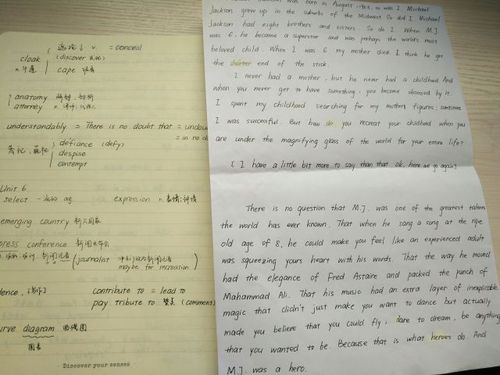 v. = conceal
cloak (discover
n. 斗篷 cape
anatomy 解剖
attorney n.
understandably = There is no doubt that =
defiance (defy)
despise
contempt
Unit 6
select - expression n. 表情
emerging country 新兴国家
press conference 新闻发布会
journalist
maybe for recreation)
contribute to = lead to
pay tribute to 赞美 (comment)
diagram 曲线图
图表
Discover your senses
was born in August
Jackson grew up in the suburbs of the Midwest. So did I. Michael
Jackson had eight brothers and sisters. So do I. When M.J.
was 6, he became a superstar and was perhaps the world's most
beloved child. When I was 6 my mother died. I think he got
the shorter end of the stick.
I never had a mother, but he never had a childhood. And
when you never get to have something, you become obsessed by it.
I spent my childhood searching for my mother figures; sometimes
I was successful. But how do you recreat your childhood when you
are under the magnifying glass of the world for your entire life?
( I have a little bit more to say than that ok, here we go again)
There is no question that M.J. was one of the greatest talents
the world has ever known. That when he sang a song at the ripe
old age of 8, he could make you feel like an experienced adult
was squeezing yours heart with his words. That the way he moved
had the elegance of Fred Astaire and packed the punch of
Mahammad Ali. That his music had an extra layer of inexplicable
magic that didn't just make you want to dance but actually
made you believe that you could fly, dare to dream, be anything
that you wanted to be. Because that is what heroes do. And
M.J. was a hero.